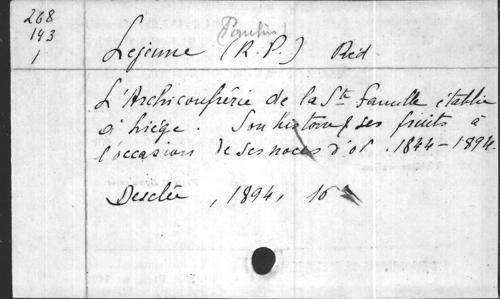 268
143
1
(Paulin)
Lejeune (R. P.) Réd
L'Archiconfrérie de la Ste famille établie
à Liége. Son histoire & ses fruits à
l'occasion de ses noces d'or. 1844-1894.
Desclée, 1894, 16